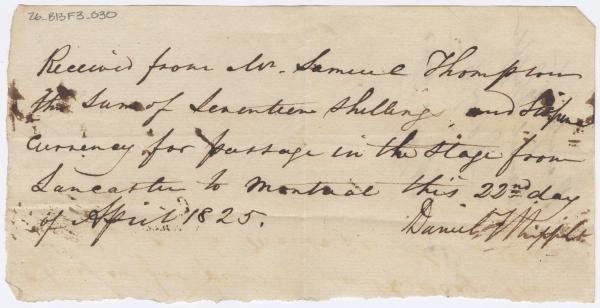 26_B13F3_030
Received from Mr. Samuel Thompson
the Sum of Seventeen shillings and Sixpence
Currency for passage in the Stage from
Lancaster to Montreal this 22nd day
of April 1825.
Daniel